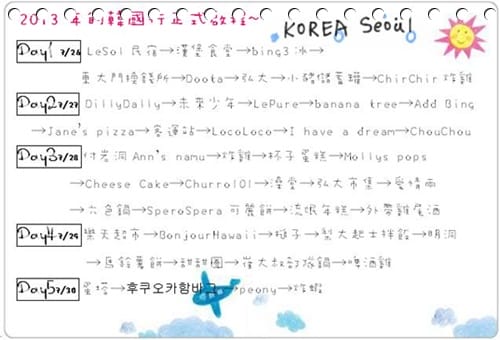 2013年的韓國行正式啟程~
KOREA Seoul
Day1 7/26 LeSol 民宿→漢堡食堂→bing3冰→
東大門換錢所→Doota→弘大→小豬儲蓄罐→ChirChir 炸雞
Day2 7/27 DillyDally→未來少年→LePure→banana tree→Add Bing
→Jane's pizza→客運站→LocoLoco→I have a dream→ChouChou
Day3 7/28 付岩洞 Ann's namu→炸雞→杯子蛋糕→Mollys pops
→Cheese Cake→Churro101→澡堂→弘大市集→愛情雨
→六色鍋→SperoSpera 可麗餅→流氓年糕→外帶雞尾酒
Day4 7/29 樂天超市→BonjourHawaii→梃子→梨大起士拌飯→明洞
→馬鈴薯餅→甜甜圈→崔大叔部隊鍋→啤酒雞
Day5 7/30 蛋塔→후쿠오카함바그→peony→炸蝦